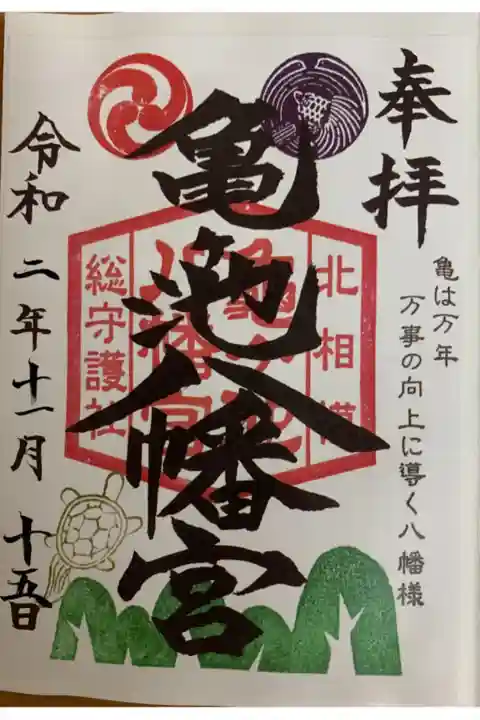 奉拝
亀は万年
万事の向上に導く八幡様
北相模
総守護社
亀池八幡宮
令和二年十一月十五日